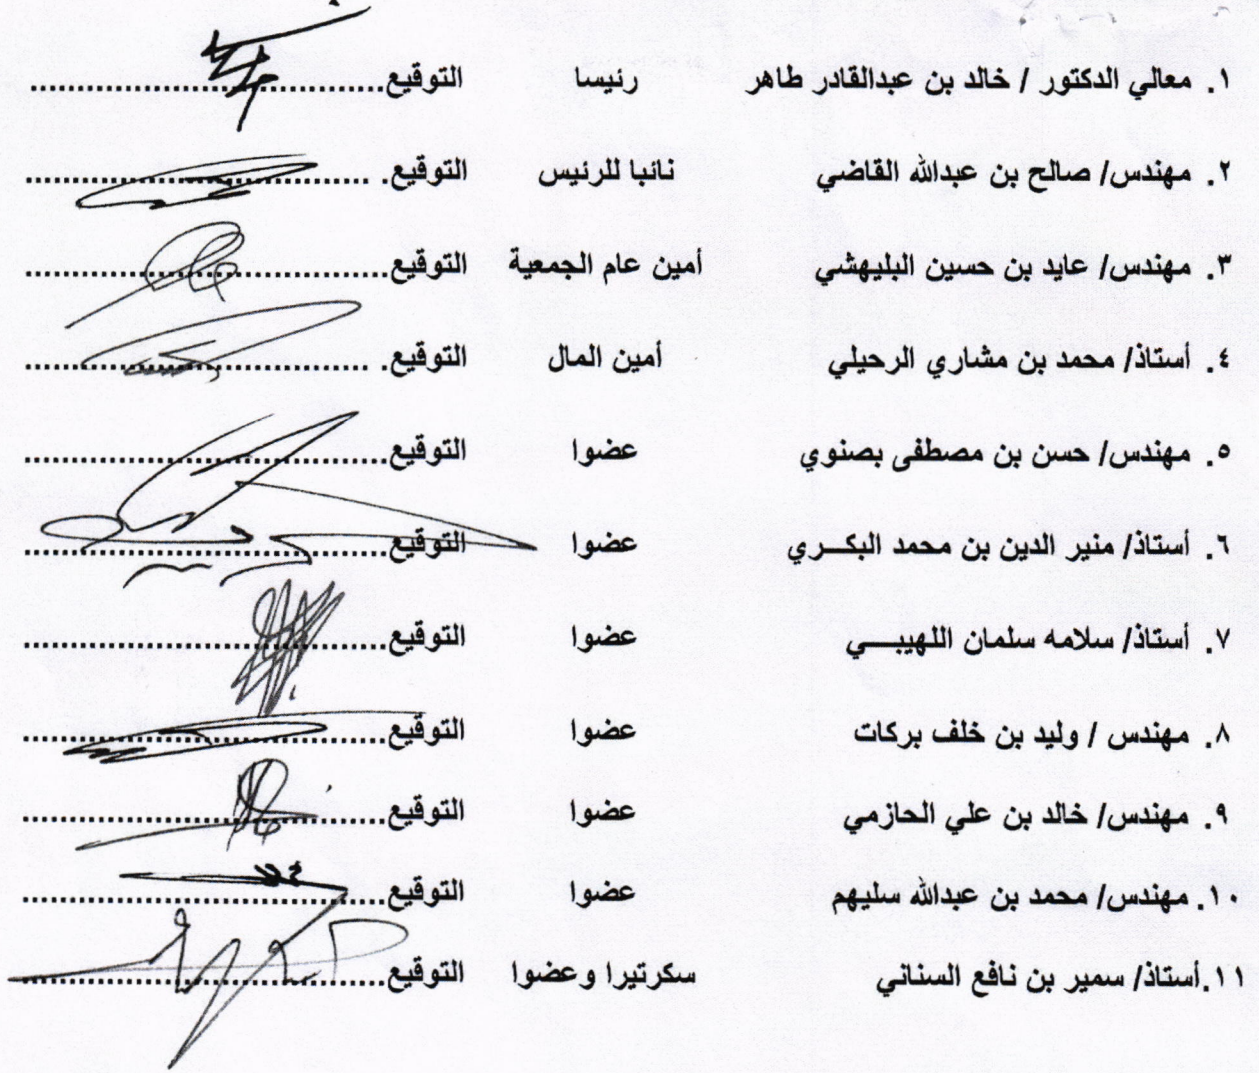 ١. معالي الدكتور / خالد بن عبدالقادر طاهر رئيسا التوقيع....................................
٢. مهندس/ صالح بن عبدالله القاضي نائبا للرئيس التوقيع. ....................................
٣. مهندس/ عايد بن حسين البليهشي أمين عام الجمعية التوقيع....................................
٤. أستاذ/ محمد بن مشاري الرحيلي أمين المال التوقيع. ....................................
٥. مهندس/ حسن بن مصطفى بصنوي عضوا التوقيع....................................
٦. أستاذ/ منير الدين بن محمد البكـــري عضوا التوقيع....................................
٧. أستاذ/ سلامه سلمان اللهيبـــي عضوا التوقيع....................................
٨. مهندس / وليد بن خلف بركات عضوا التوقيع....................................
٩. مهندس/ خالد بن علي الحازمي عضوا التوقيع....................................
١٠. مهندس/ محمد بن عبدالله سليهم عضوا التوقيع....................................
١١.أستاذ/ سمير بن نافع السناني سكرتيرا وعضوا التوقيع....................................